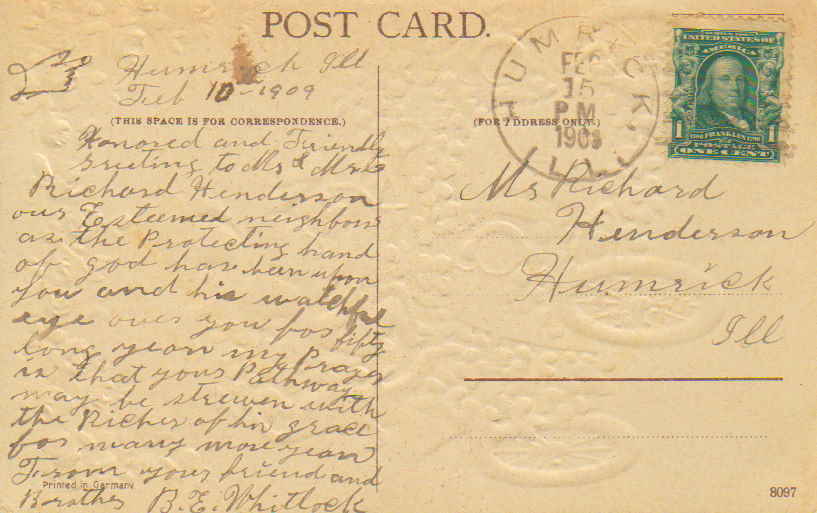 POST CARD.
Humrick Ill
Feb 10-1909
(THIS SPACE IS FOR CORRESPONDENCE.)
Honored and Friendly
Greeting to Mr & Mrs
Richard Henderson
our Esteemed neighbors
as the Protecting hand
of god has been upon
you and his watchful
eye over you for fifty
long years my Prayer
is that your Pathway
may be strewen with
the Riches of his grace
for many more years
From your friend and
Brother B.E. Whitlock
Printed in Germany
(FOR ADDRESS ONLY.)
HUMRICK, ILL.
FEB
15
P.M.
1909
UNITED STATES OF
AMERICA
1
FRANKLIN
POSTAGE
ONE CENT
Mr Richard
Henderson
Humrick
Ill
8097